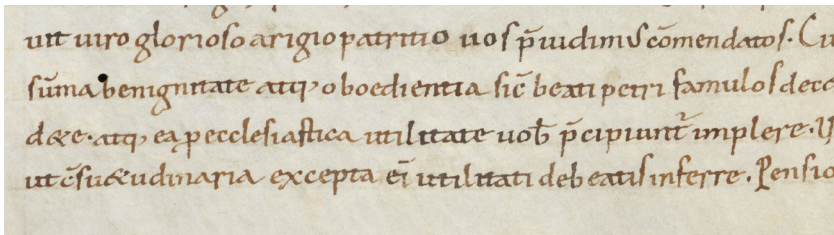 uit uiro glorioso arigio patritio uos p̄uidimus cōmendatos. Cu
sūma benignitate atq; oboedientia sic̄ beati petri famulos deco
d&e. atq; ea ꝓ ecclesiastica utilitate uob̄ p̄cipiunt̄ implere.
ut c̄su&udinaria excepta ei utilitati debeatis inferre. Pensio